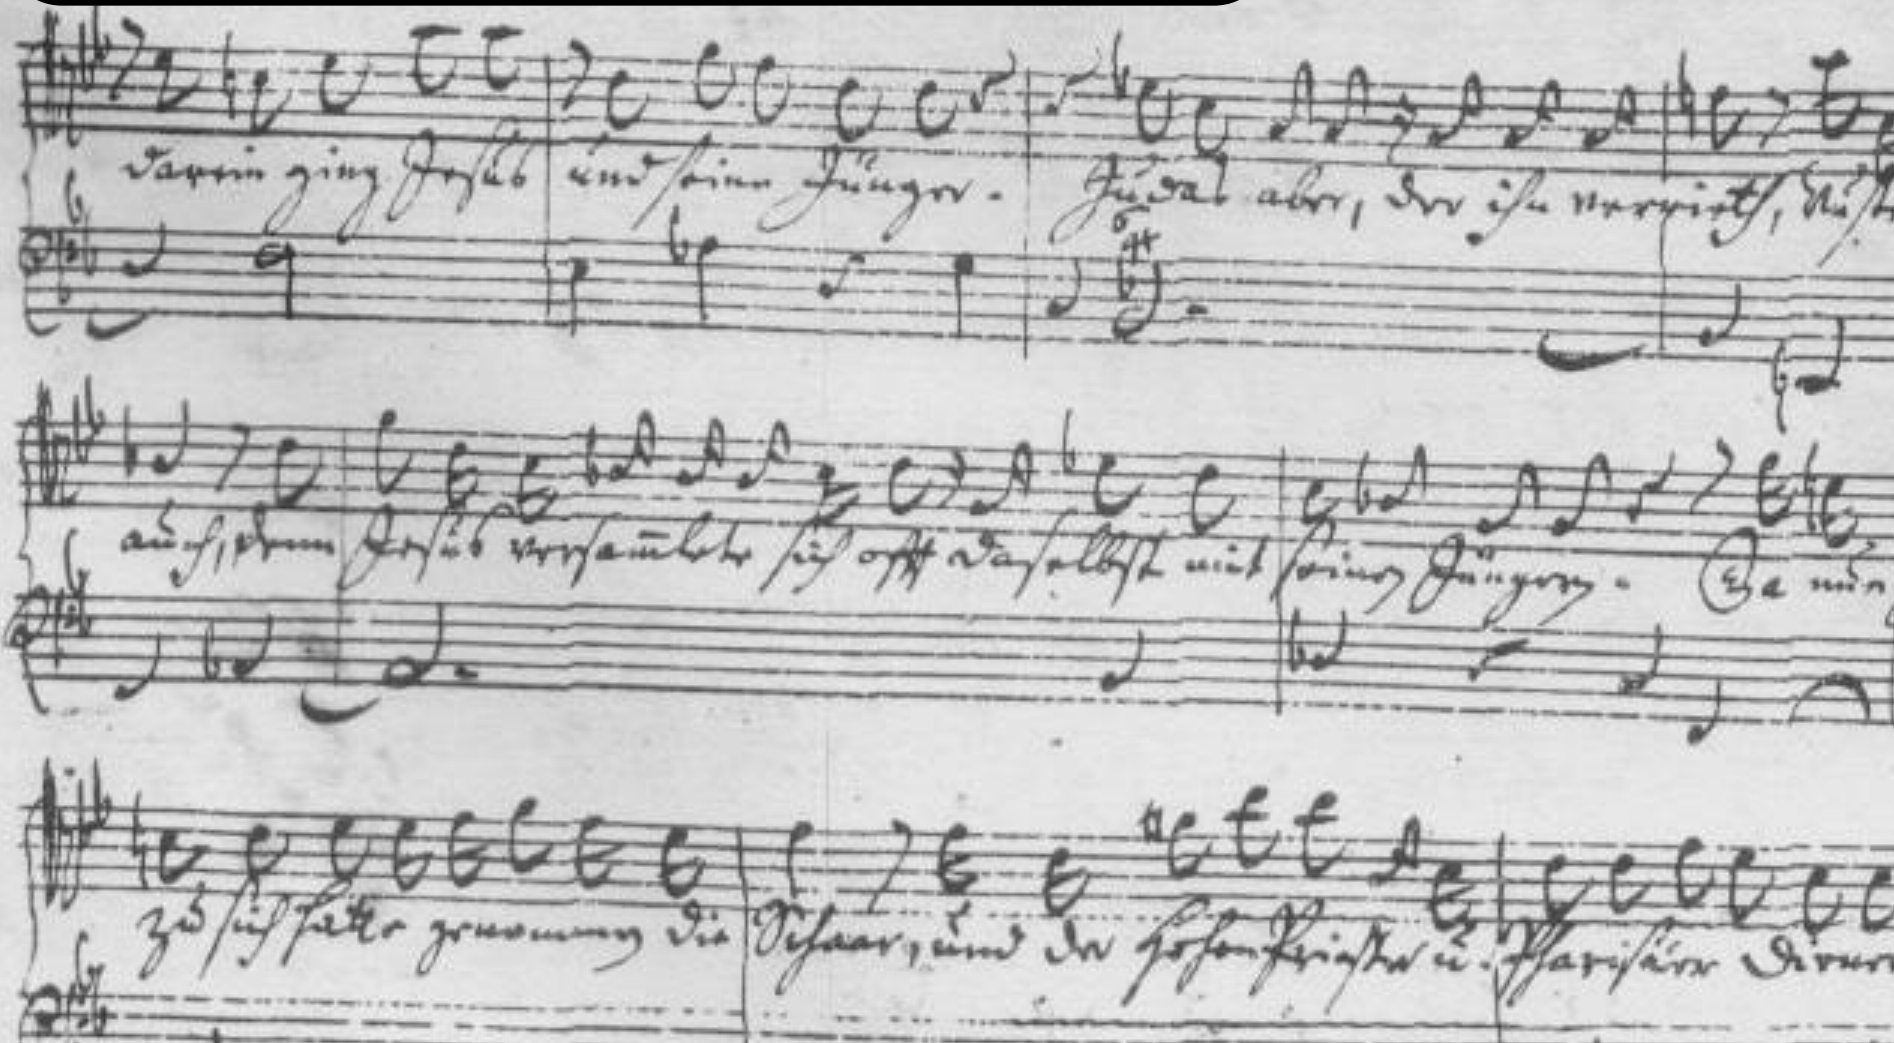 darein ging Jesus und seine Jünger. Judas aber, der ihn verrieth, wuste
auch, denn Jesus versam̅lete sich offt daselbst mit seinen Jüngern. Da nun
zu sich hatte genommen die Schaar, und der Hohenpriester u. Pharisäer Diener